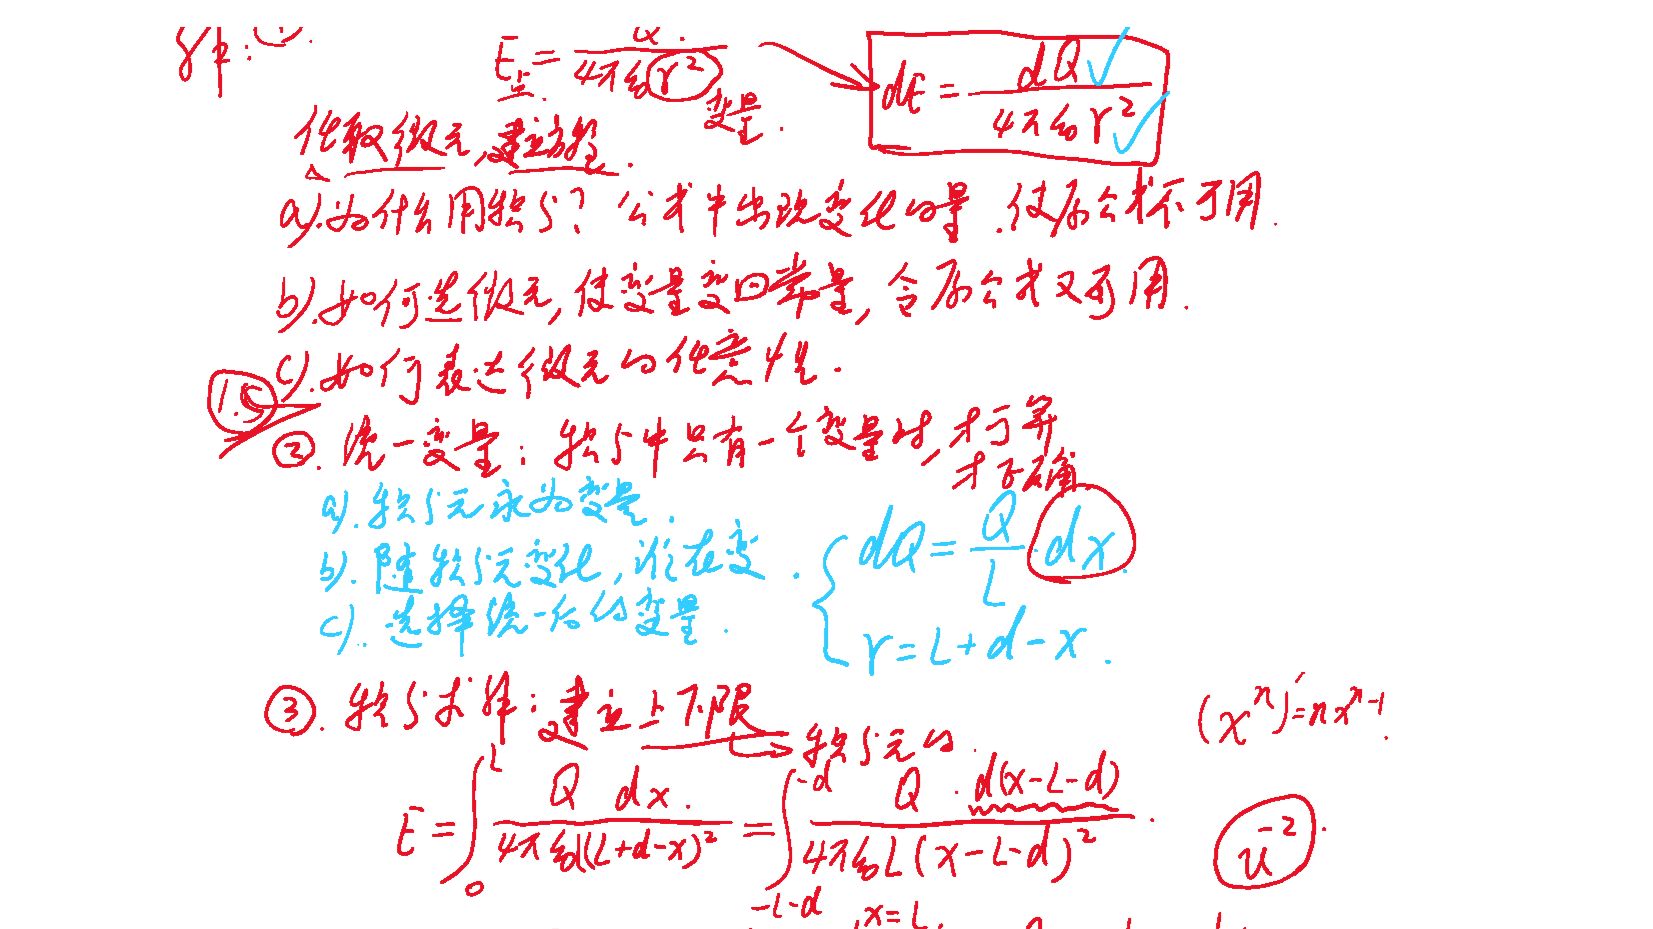 解:①.
E点 = Q / 4πε₀r² → dE = dQ / 4πε₀r²
变量.
任取微元,建立方程.
a).为什么用积分?公式中出现变化的量.使原公式不可用.
b).如何选微元,使变量变回常量,令原公式又可用.
c).如何表达微元的任意性.
②.统一变量:积分中只有一个变量时,才可算
才正确
a).积分元永为变量.
b).随积分元变化,谁在变.
c).选择统一后的变量.
dQ = Q/L · dx
r = L+d-x.
③.积分求解:建立上下限
积分元的.
(xⁿ)′=nxⁿ⁻¹.
E = ∫₀ᴸ Q dx. / 4πε₀L(L+d-x)² = ∫_{-L-d}^{-d} Q · d(x-L-d) / 4πε₀L(x-L-d)² .
u⁻².
x=L.